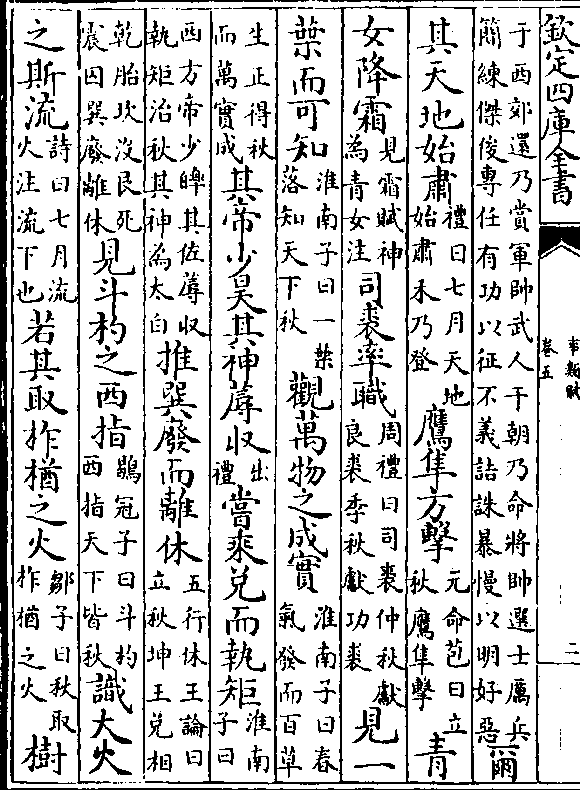 欽定四庫全書
事類賦
卷五
二
于西郊還乃賞軍帥武人于朝乃命將帥選士厲兵
簡練傑俊專任有功以征不義詰誅暴慢以明好惡爾
其天地始肅禮曰七月天地始肅禾乃登鷹隼方擊元命苞曰立秋鷹隼擊青
女降霜見霜賦神為青女注司裘率職周禮曰司裘仲秋獻良裘季秋獻功裘見一
葉而可知淮南子曰一葉落知天下秋觀萬物之成實淮南子曰春氣發而百草
生正得秋而萬實成其帝少昊其神蓐收出禮當乘兌而執矩淮南子曰
西方帝少皥其佐蓐收執矩治秋其神為太白推巽廢而離休五行休王論曰立秋坤王兌相
乾胎坎沒艮死震囚巽廢離休見斗杓之西指鶡冠子曰斗杓西指天下皆秋識大火
之斯流詩曰七月流火注流下也若其取柞楢之火鄒子曰秋取柞楢之火樹